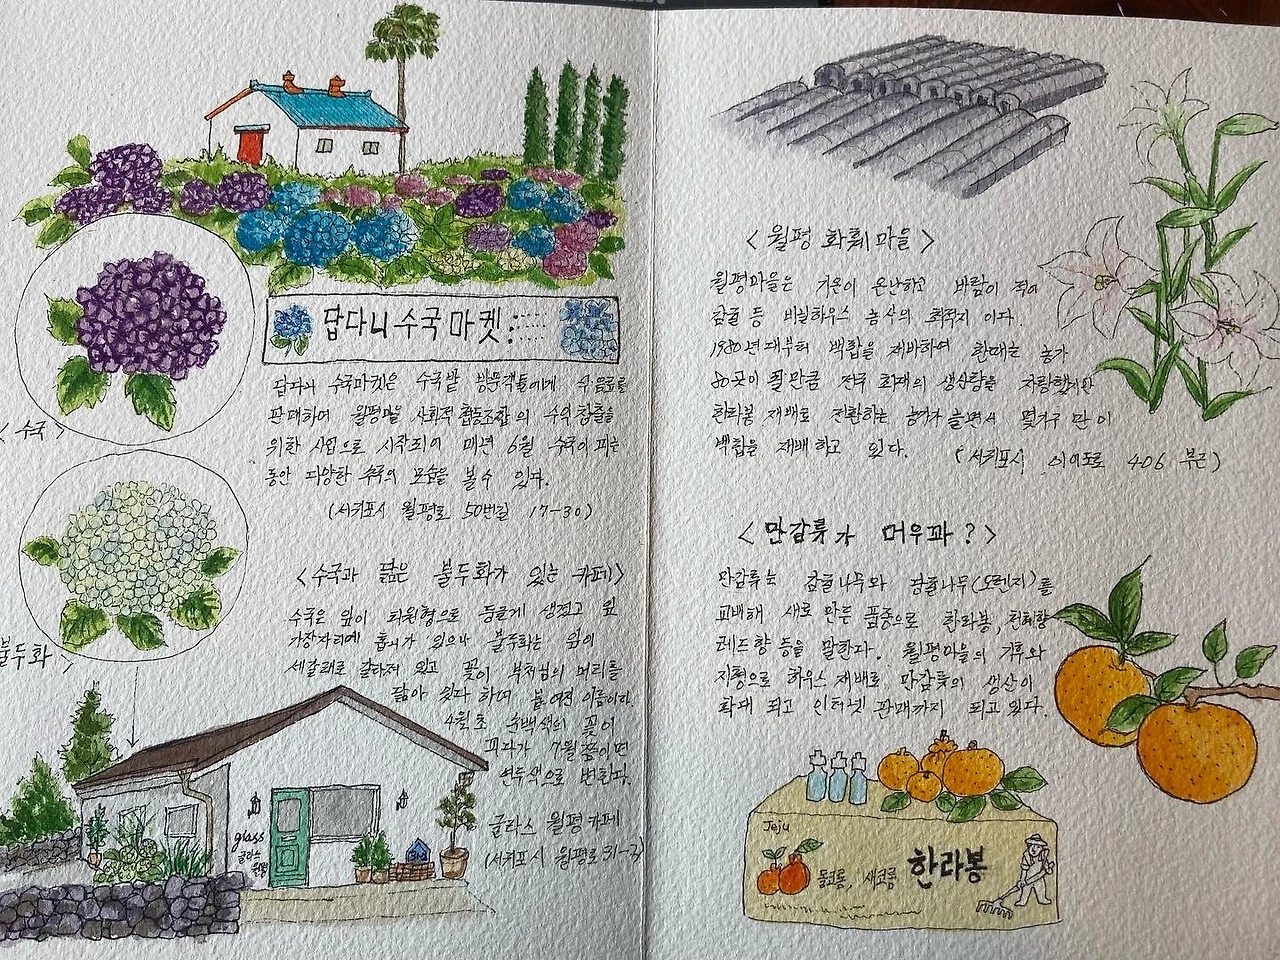 답다니 수국 마켓
답다니 수국마켓은 수국밭 방문객들에게 수음료를
판매하여 월평마을 사회적 협동조합의 수익 창출을
위한 사업으로 시작되어 매년 6월 수국이 피는
동안 다양한 수국의 모습을 볼수 있다.
(서귀포시 월평로 50번길 17-30)
<수국>
불두화>
<수국과 닮은 불두화가 있는 카페>
수국은 잎이 타원형으로 둥글게 생겼고 잎
가장자리에 톱니가 있으나 불두화는 잎이
세갈래로 갈라져 있고 꽃이 부처님의 머리를
닮아 있다 하여 붙여진 이름이다.
4월초 순백색의 꽃이
피다가 7월쯤이면
연두색으로 변한다.
글라스 월평 카페
(서귀포시 월평로 31-2)
glass
글라스
월평
<월평 화훼마을>
월평마을은 기온이 온난하고 바람이 적어
감귤 등 비닐하우스 농사의 최적지 이다.
1980년대부터 백합을 재배하여 한때는 농가
80곳이 될만큼 전국 최대의 생산량을 자랑했지만
한라봉 재배로 전환하는 농가가 늘면서 몇가구 만이
백합을 재배하고 있다. (서귀포시 이어도로 406 부근)
<만감류가 머우꽈?>
만감류는 감귤나무와 당귤나무(오렌지)를
교배해 새로 만든 품종으로 한라봉, 천혜향
레드향 등을 말한다. 월평마을의 기후와
지형으로 하우스 재배로 만감류의 생산이
확대 되고 인터넷 판매까지 되고 있다.
Jeju
돌코롬, 새코롬 한라봉